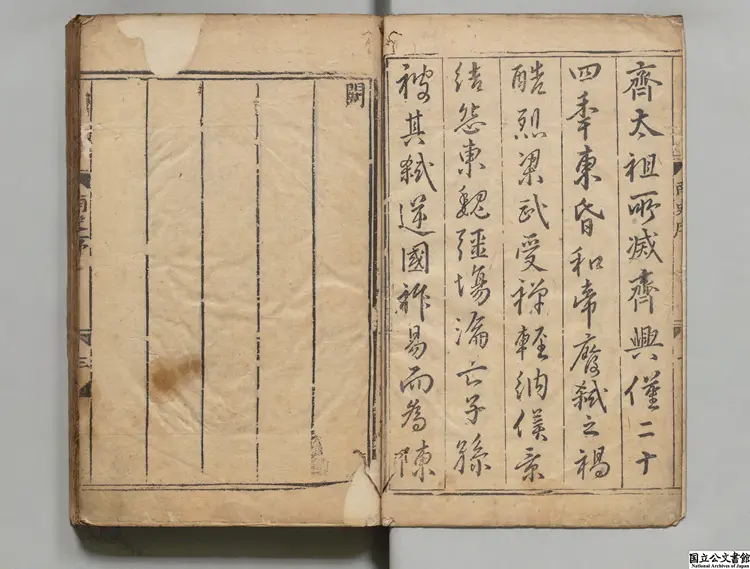 齊太祖所滅齊興僅二十
四年東昏和帝廢弑之禍
酷烈梁武受禪輕納侯景
結怨東魏疆場淪亡子孫
被其弑逆國祚易而為陳
南史序
闕
国立公文書館
National Archives of Japan